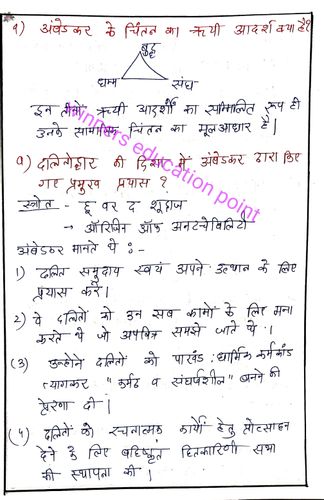 १) अंबेडकर के चिंतन का त्रयी आदर्श क्या है?
बुद्ध
धम्म संघ
इन तीनों त्रयी आदर्शों का सम्मिलित रूप ही
उनके सामाजिक चिंतन का मूल आधार है।
winners education point
a) दलितोद्धार की दिशा में अंबेडकर द्वारा किए
गए प्रमुख प्रयास ?
स्त्रोत - हू वर द शूद्राज
→ ऑरिजिन ऑफ अनटचेबिलिटी
अंबेडकर मानते थे :-
1) दलित समुदाय स्वयं अपने उत्थान के लिए
प्रयास करें।
2) वे दलितों को उन सब कामों के लिए मना
करते थे जो अपवित्र समझे जाते थे ।
(3) उन्होंने दलितों को पाखंड : धार्मिक कर्मकांड
त्यागकर " कर्मठ व संघर्षशील " बनने की
प्रेरणा दी ।
(4) दलितों को रचनात्मक कार्यों हेतु प्रोत्साहन
देने के लिए बहिष्कृत हितकारिणी सभा
की स्थापना की ।